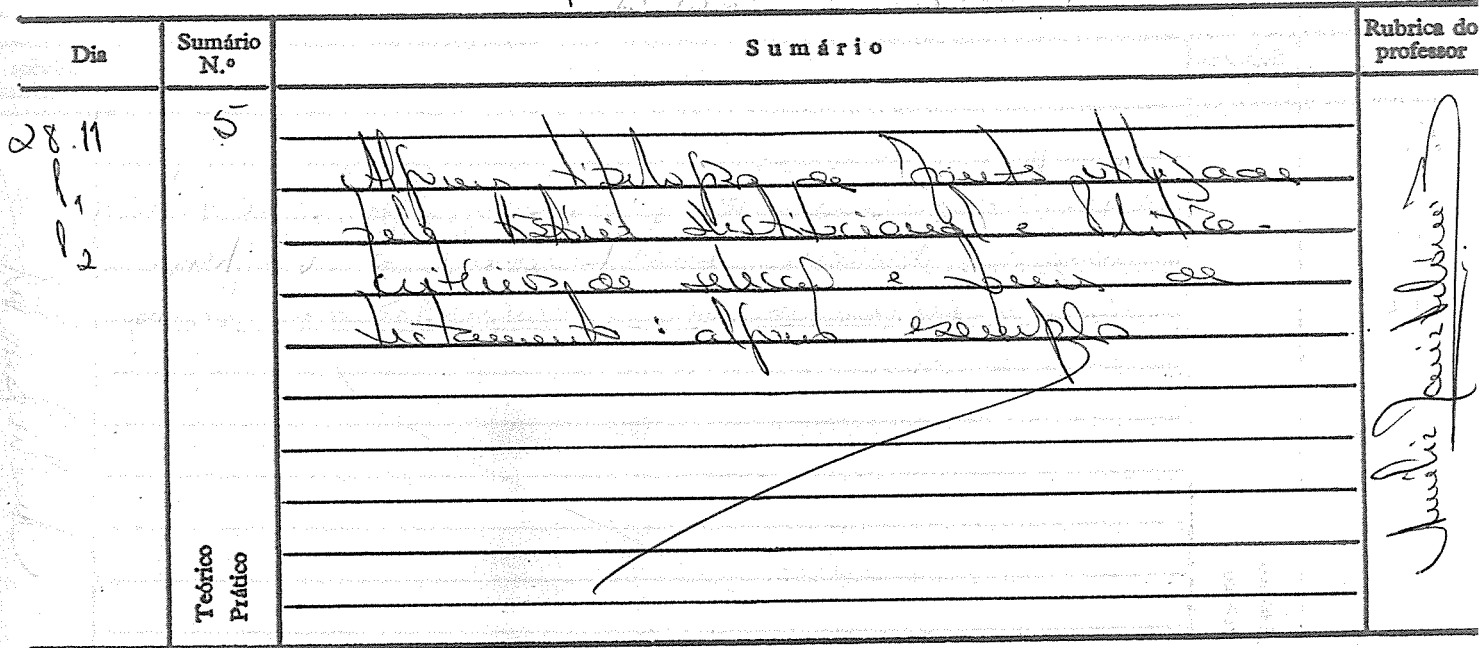 Dia
Sumário N.º
Sumário
Rubrica do professor
28.11
P1
P2
5
Alguns tipologia de fontes utilizadas
pela história institucional e política -
critérios de selecção e formas de
tratamento: alguns exemplos
Teórico
Prático